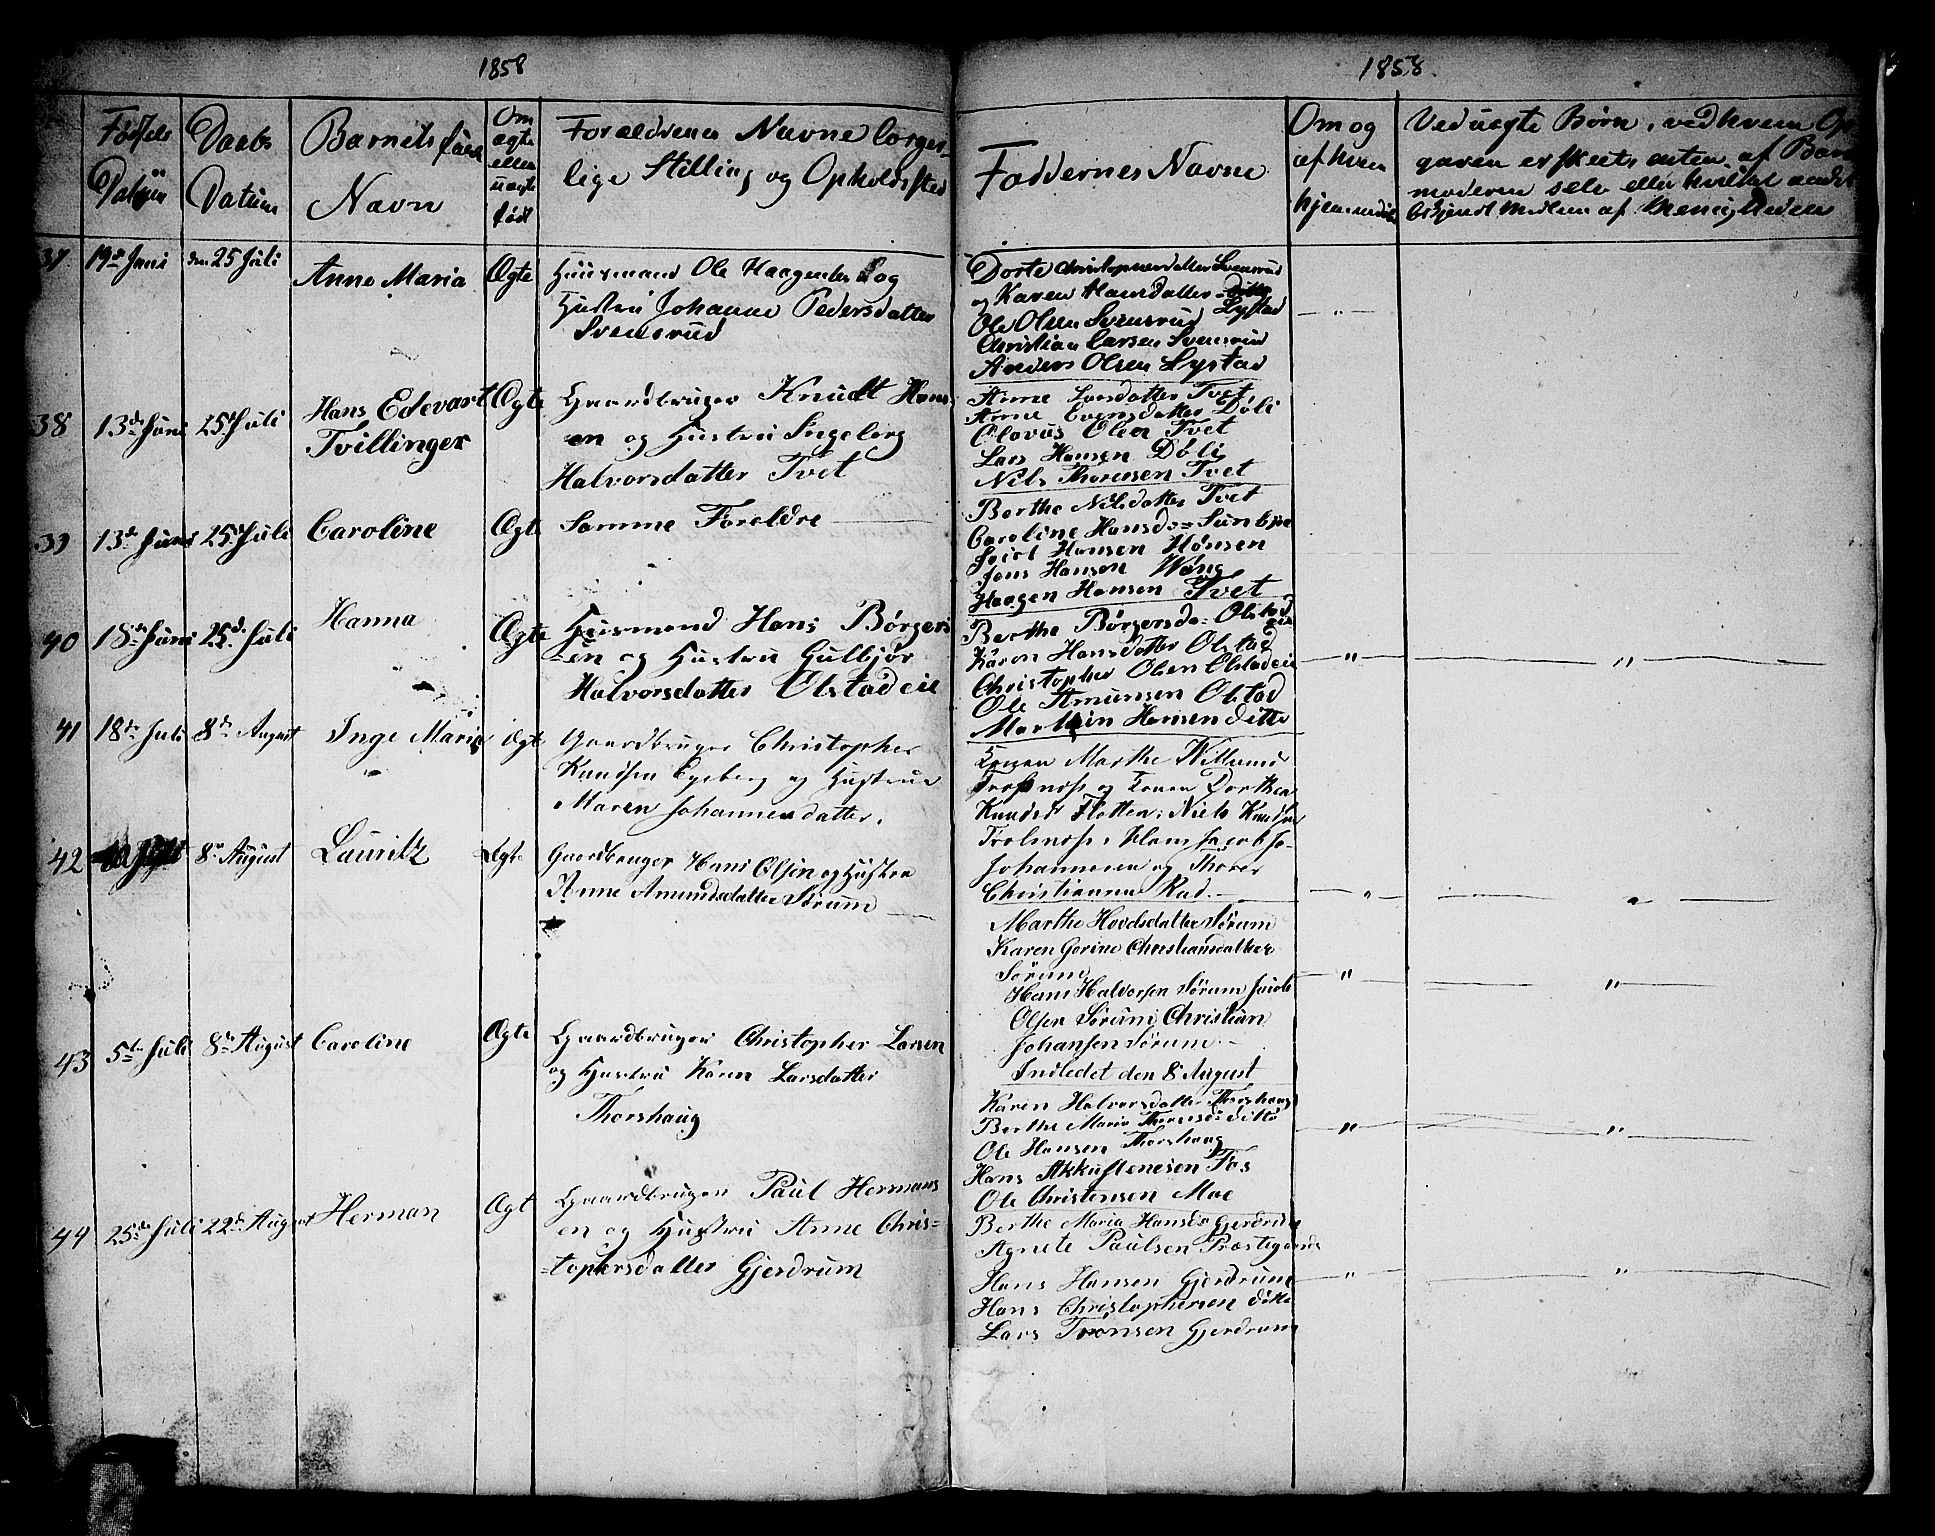 1858
1858.
Fødsels
Datum
Daabs
Datum
Barnets fulde
Navn
Om
ægte
eller
uægte
født
Forældrenes Navne borger-
lige Stilling og Opholdssted
Faddernes Navne
Om og
af hvem
hjemmedøbt
Ved uægte Børn, ved hvem Op-
gaven er skeet, enten af Barne
moderen selv eller hvilket andet
bekjendt Medlem af Menigheden
37 19de Juni den 25 Juli Anne Maria Ægte
Huusmand Ole Haagensen og
Hustru Johanne Pedersdatter
Svensrud
Dorte Christophersdatter Svensrud
og Karen Hansdatter Lystad
Ole Olsen Svensrud
Christian Larsen Svensrud
Anders Olsen Lystad
— " —
38 13de Juni 25de Juli Hans Edevart Ægte
Tvillinger
Gaardbruger Knudt Hans
en og Hustru Ingeborg
Halvorsdatter Tvet
Anne Larsdatter Tvet
Anne Evensdatter Døli
Olavus Olsen Tvet
Lars Hansen Døli
Nils Thoresen Tvet
39 13de Juni 25de Juli Caroline Ægte
Samme Foreldre —
Berthe Nilsdatter Tvet
Caroline Hansda=
Hansen Hønsen
Jens Hansen Wang
Haagen Hansen Tvet
40 18de Juni 25de Juli Hanna Ægte
Huusmand Hans Børgers
=en og Hustru Gulbjør
Halvorsdatter Olstadeie
Berthe Børgersda= Olstadeie
Karen Hansdatter Olstad
Christopher Olsen Olstadeie
Ole Amunsen Olstad
Marthin Hansen ditto
— " —
— " —
41 18de Juli 8de August Inge Marie Ægte
Gaardbruger Christopher
Knudsen Egeberg og Hustrue
Maren Johannesdatter.
Konen Marthe Willums
og Konen Dorthea
Knudsd Flatten, Niels Knudsen
Jacobsen
Johannesen og Thorer
Christiansen Rud.
— " —
42 8de August Lauritz Ægte
Gaardbruger Hans Olsen og Hustru
Anne Amundsdatter Sørum —
Marthe Hovelsdatter Sørum
Karen Gorine Christiansdatter
Sørum
Hans Halvorsen Sørum Jacob
Olsen Sørum, Christian
Johansen Sørum. —
Indledet den 8 August
— " —
— " —
43 5te Juli 8de August Caroline Ægte
Gaardbruger Christopher Larsen
og Hustru Karen Larsdatter
Thorshaug
Karen Halvorsdatter Thorshaug
Berthe Maria Thoresd: ditto
Ole Hansen Thorshaug
Hans Fos
Ole Christensen Moe
— " —
— " —
44 25de Juli 22de August Herman Ægt
Gaardbruger Paul Hermans
en og Hustru Anne Chris=
=tophersdatter Gjerdrum
Berthe Maria Hansda Gjerdrum
Agnete Paulsen Præstegaarde
Hans Hansen Gjerdrum
Hans Christophersen ditto
Lars Tronsen Gjerdrum
— " —
— " —